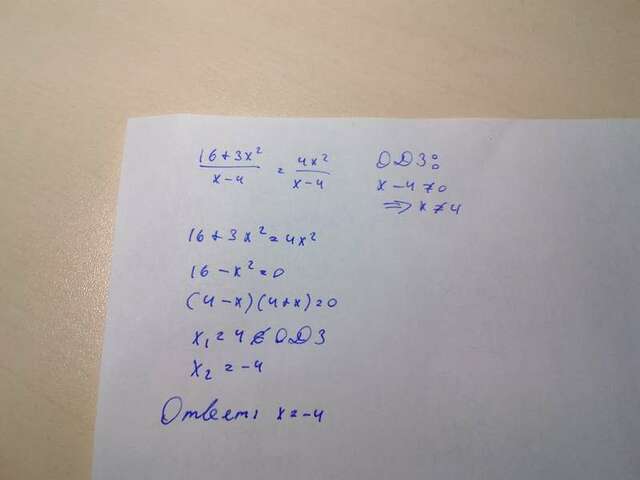 16+3x² / x-4 = 4x² / x-4
ОДЗ:
x-4≠0
⇒ x≠4
16+3x²=4x²
16-x²=0
(4-x)(4+x)=0
x₁=4∉ОДЗ
x₂=-4
Ответ: x=-4